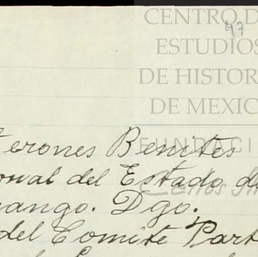 CENTRO D
ESTUDIOS
DE HISTOR
DE MEXIC
FUNDACI
97
erones Benites
onal del Estado de
ango. Dgo.
del Comité Part